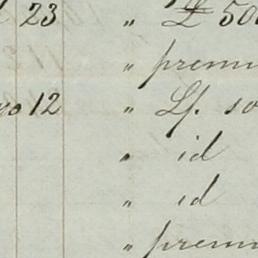 23 " £ 50
" premi
12 " Lf. so
" id
" id
" premi